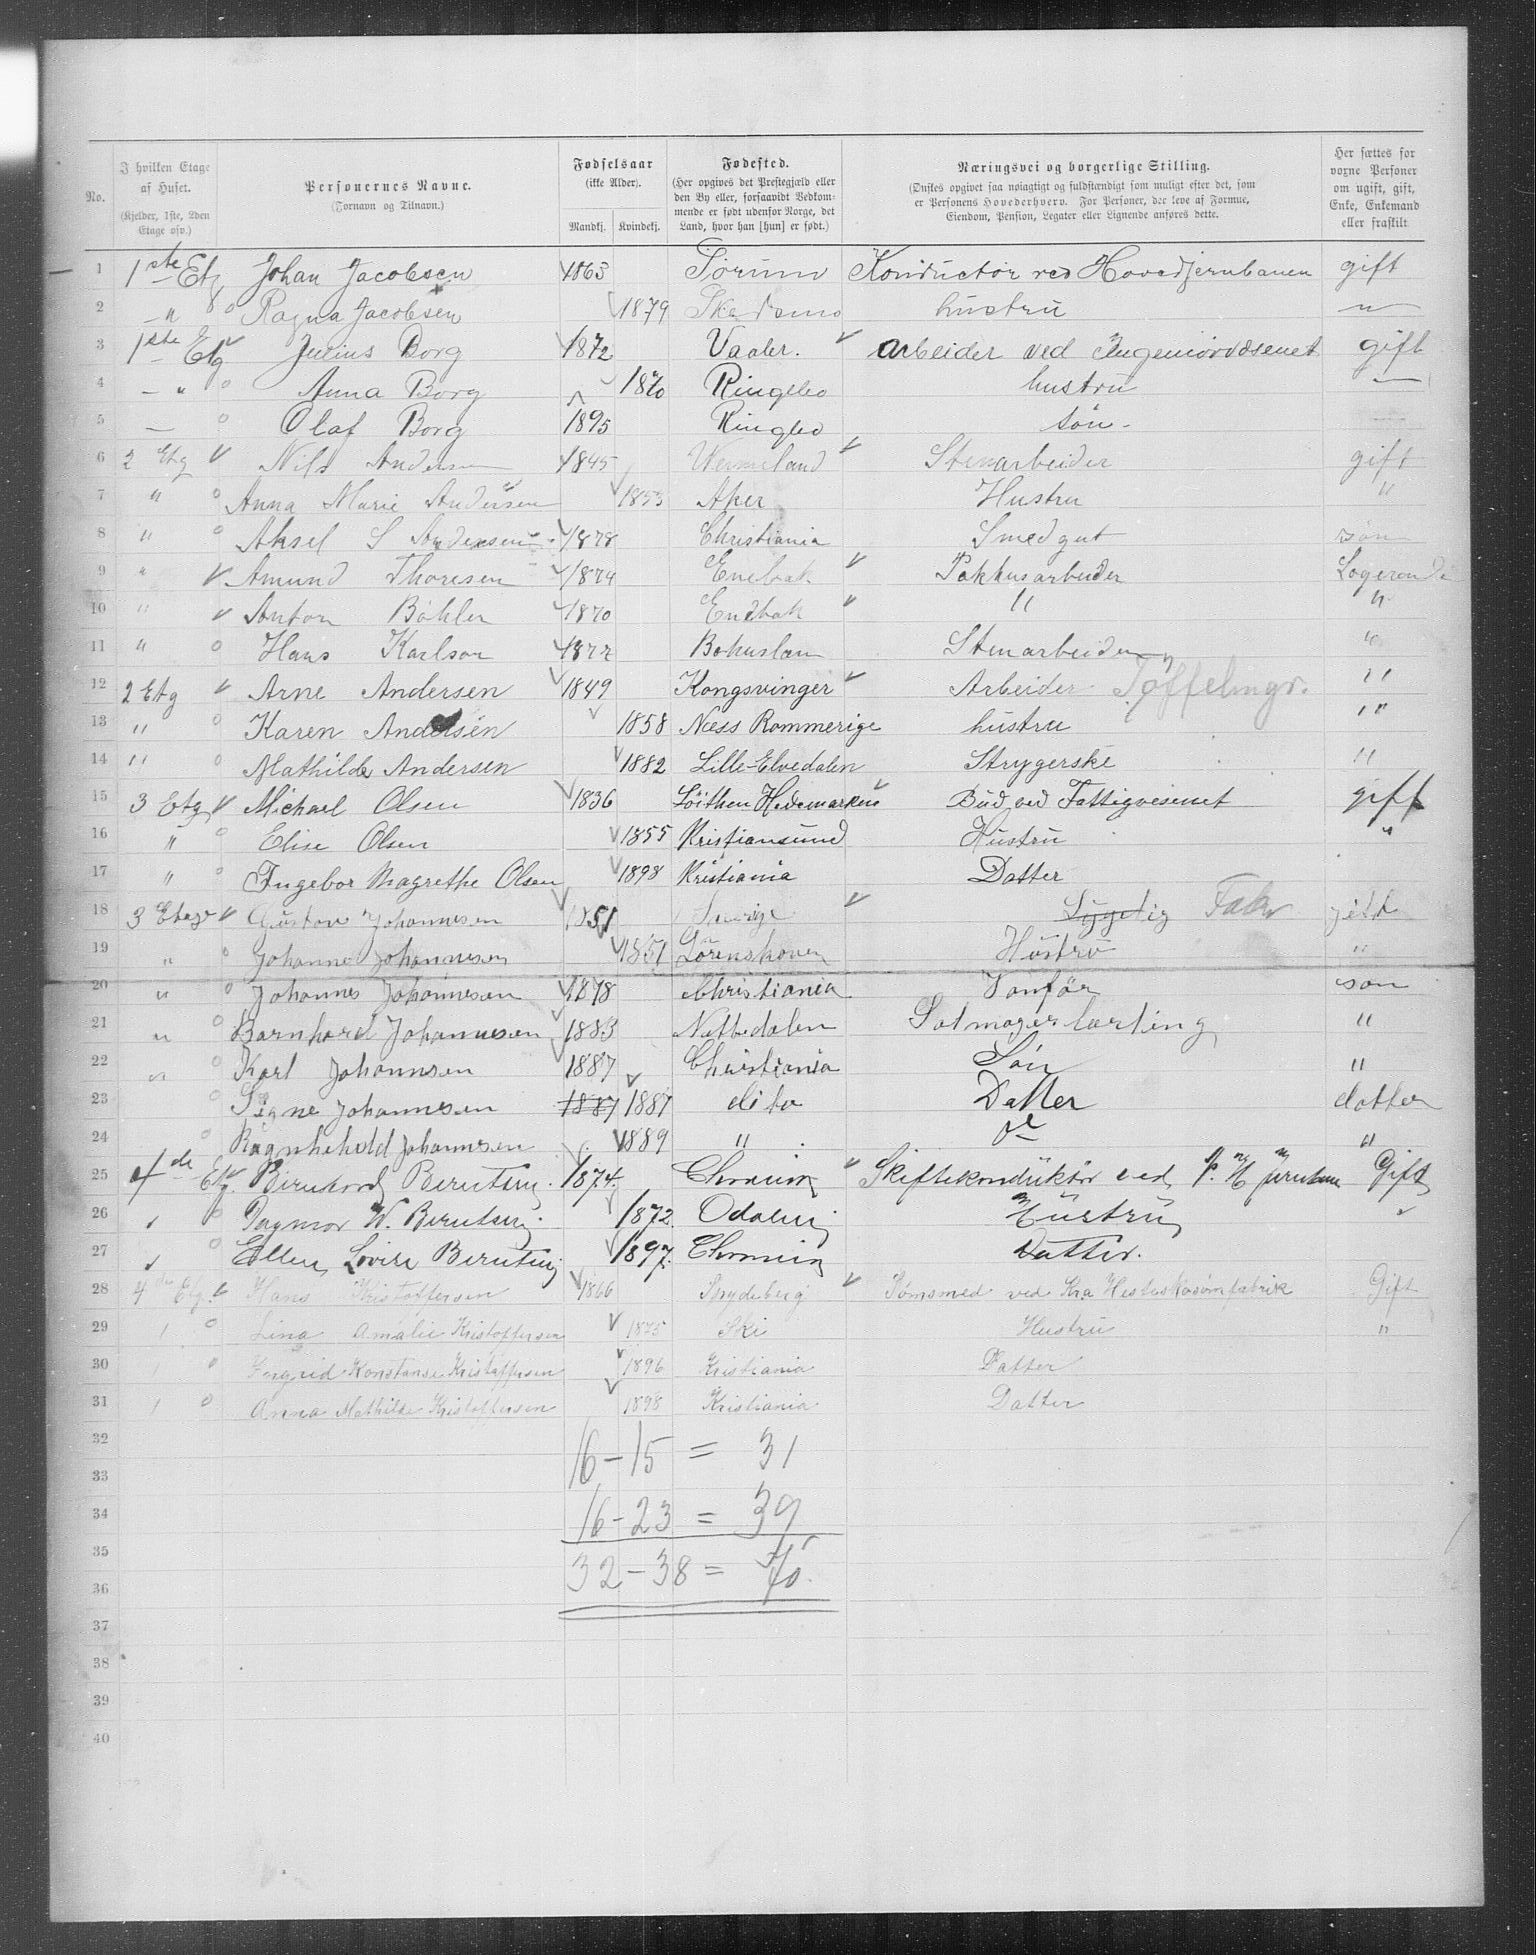 No.	I hvilken Etage af Huset. (Kjelder, 1ste, 2den Etage osv.)	Personernes Navne. (Fornavn og Tilnavn.)	Fødselsaar (ikke Alder). Mandkj. Kvindekj.	Fødested. (Her opgives det Prestegjæld eller den By eller, forsaavidt Vedkommende er født udenfor Norge, det Land, hvor han [hun] er født.)	Næringsvei og borgerlige Stilling. (Ønskes opgivet saa nøiagtigt og fuldstændigt som muligt efter det, som er Personens Hovederhverv. For Personer, der leve af Formue, Eiendom, Pension, Legater eller Lignende anføres dette.	Her sættes for voxne Personer om ugift, gift, Enke, Enkemand eller fraskilt
1 1ste Etg Johan Jacobsen 1863 Sørum Konductør ved Hovedjernbanen gift
2 " Ragna Jacobsen 1879 Skedsmo hustru "
3 1ste Etg Julius Borg 1872 Vaaler. arbeider ved Ingeniørvæsenet gift
4 " Anna Borg 1870 Ringebo hustru —
5 — Olaf Borg 1895 Ringbo søn -
6 2 Etg Nils Andersen 1845 Vermeland Stenarbeider gift
7 " Anna Marie Andersen 1853 Aker Hustru "
8 " Aksel S Andersen 1878 Christiania Smedgut søn
9 " Amund Thoresen 1874 Enebak Pakhusarbeider Logerende
10 " Anton Bøhler 1870 Enebak " "
11 " Hans Karlson 1877 Bohuslæn Stenarbeider "
12 2 Etg Arne Andersen 1849 Kongsvinger Arbeider Tøffelmgr. "
13 " Karen Andersén 1858 Næss Rommerige hustru "
14 " Mathilde Andersen 1882 Lille-Elvedalen Strygerske "
15 3 Etg Michael Olsen 1836 Löithen Hedemarken Bud ved Fattigvesenet gift
16 " Elise Olsen 1855 Kristiansund Hustru "
17 " Ingebor Magrethe Olsen 1898 Kristiania Datter
18 3 Etage Gustav Johannesen 1851 Sverige Sygelig Fabr gift
19 " Johanne Johannesen 1851 Lørenskoven Hustru "
20 " Johannes Johannesen 1878 Christiania Vanför søn
21 " Barnhard Johannesen 1883 Nittedalen Salmagerlærling "
22 " Karl Johannsen 1887 Christiania Søn "
23 Signe Johannesen 1887 1887 dito Datter datter
24 Ragnhehild Johannesen 1889 " do "
25 4de Etg. Bernhard Berntsen. 1874. Chrania Skiftekonduktør ved N. H Jernbane Gift
26 Dagmar W. Berntsen. 1872. Odalen Hustru "
27 Ellen Lovise Berntsen 1897. Chrania Datter.
28 4de Etg. Hans Kristoffersen 1866 Spydeberg Sømsmed ved Kra Hesteskosømfabrik Gift
29 Lina Amalie Kristoffersen 1875 Ski Hustru "
30 Ingrid Konstanse Kristoffersen 1896 Kristiania Datter
31 Anna Mathilde Kristoffersen 1898 Kristiania Datter
32 16 - 15 = 31
33
34 16 - 23 = 39
35
36 32 - 38 = 70.
37
38
39
40